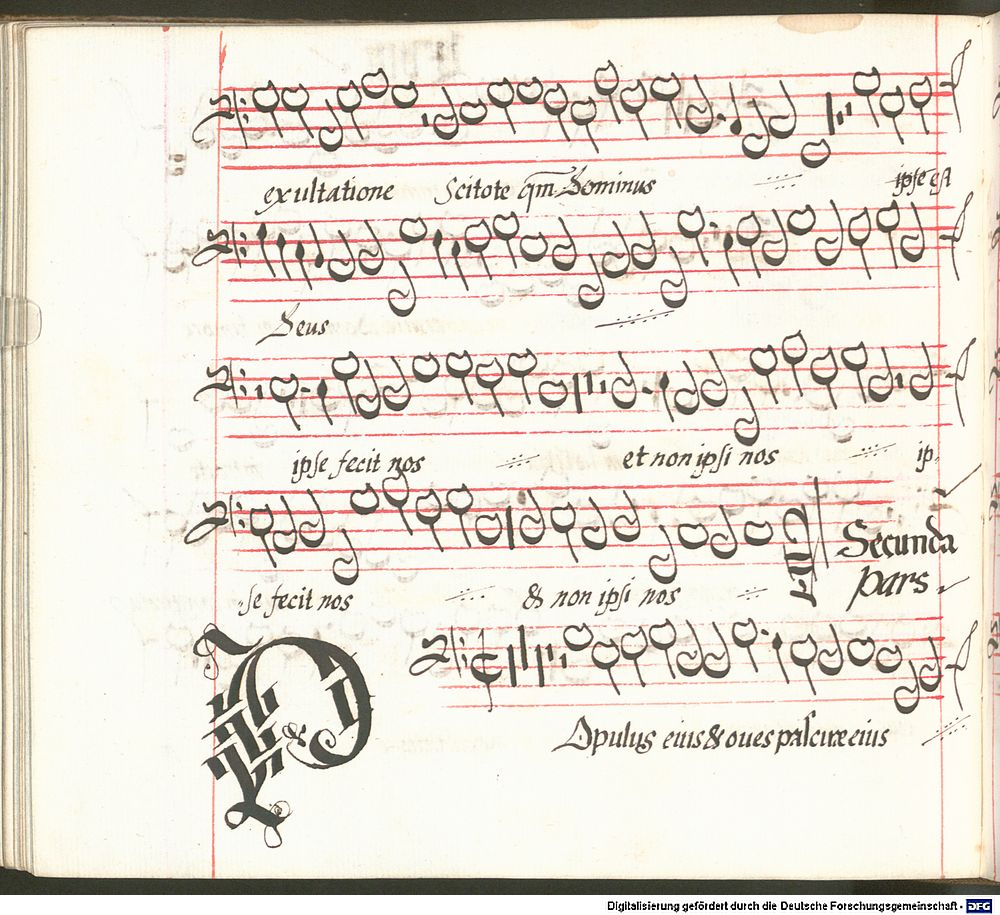 exultatione Scitote qm̅ Dominus ipse est
Deus
ipse fecit nos et non ipsi nos ip-
-se fecit nos & non ipsi nos
Secunda
pars
P
Opulus eius & oues pascuæ eius
Digitalisierung gefördert durch die Deutsche Forschungsgemeinschaft - DFG